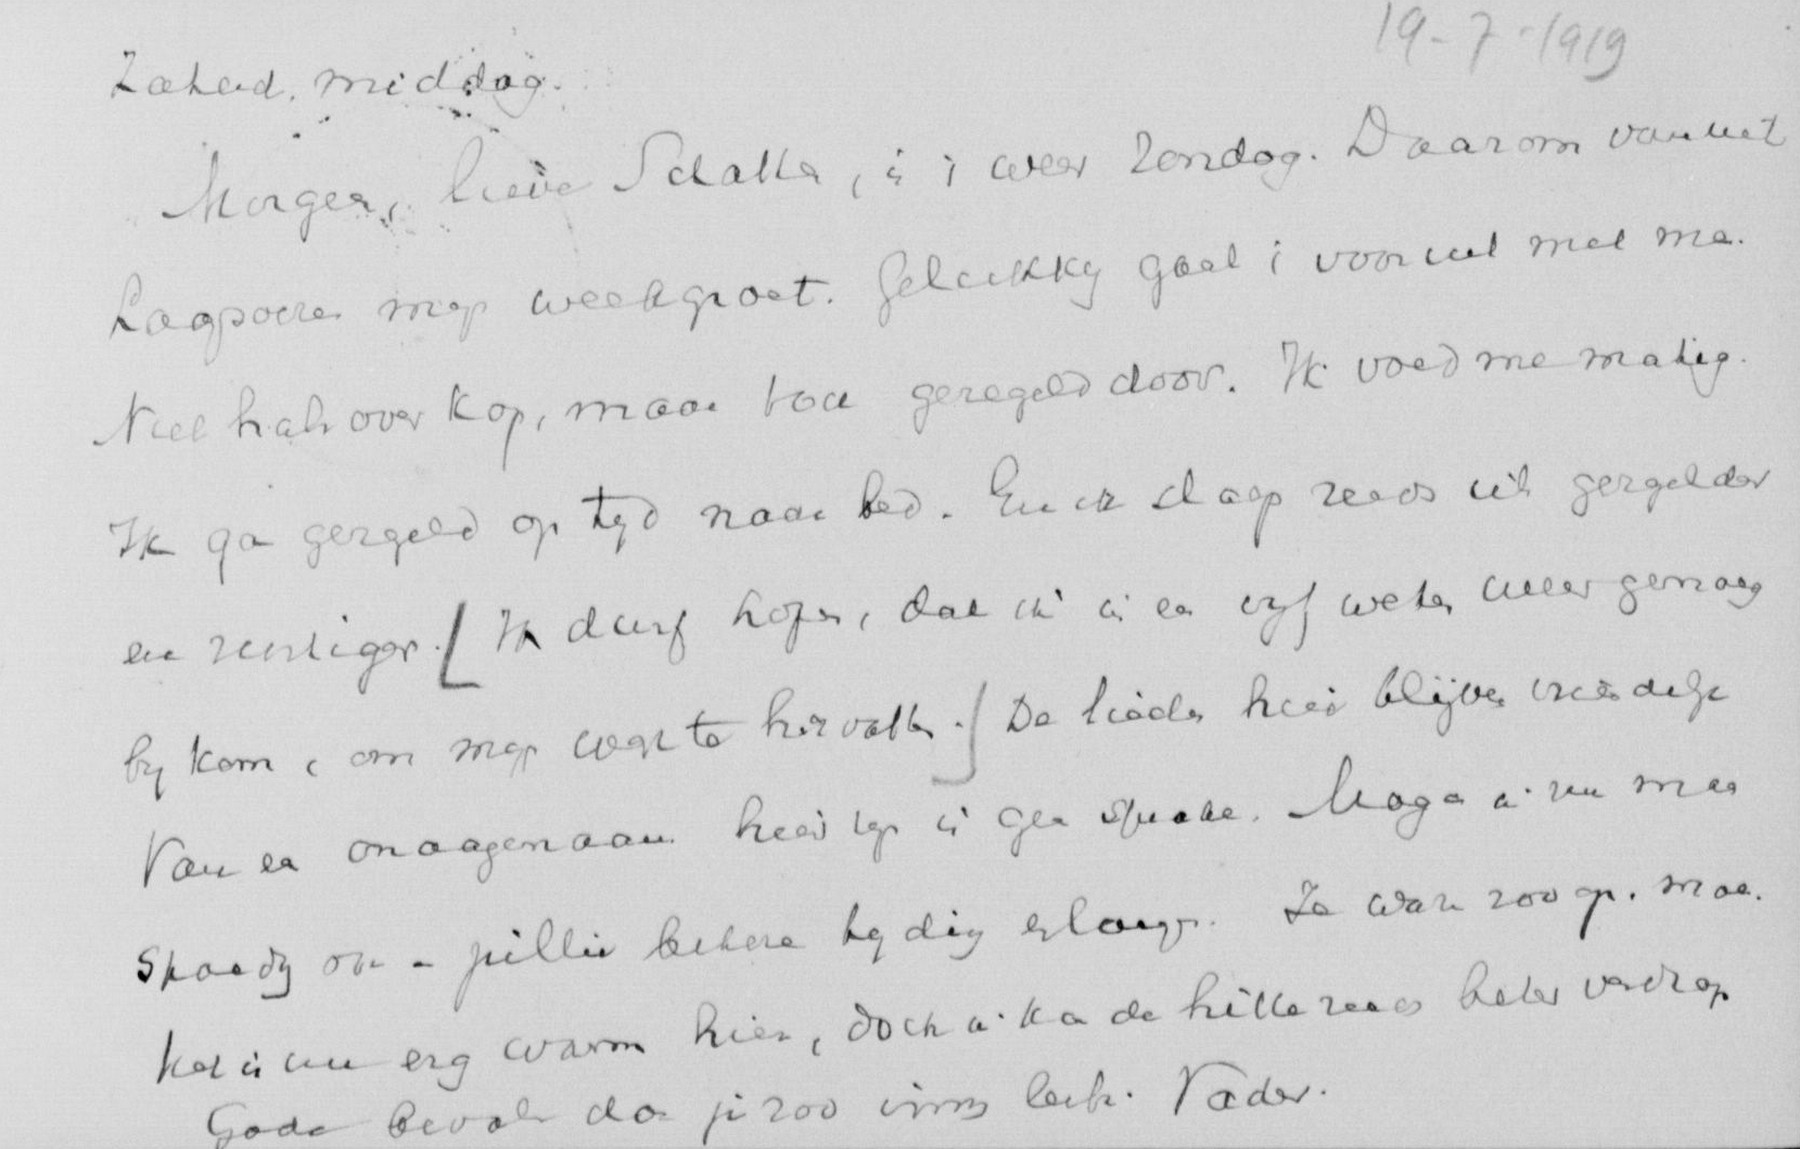 19-7-1919
Zaterd. middag.
Morgen, lieve Schatten, is 't weer Zondag. Daarom vanuit
Laag Soeren mijn weekgroet. Gelukkig gaat 't vooruit met me.
Niet hals over kop, maar toch geregeld door. Ik voed me matig.
Ik ga geregeld op tijd naar bed. En ik slaap reeds iets geregelder
en rustiger. [Ik durf hopen, dat ik in een vijf weken weer genoeg
bij kom, om mijn werk te hervatten.] De lieden hier blijven vriendelijk
Van een onaangenaam heid is geen sprake. Moge ik nu maar
spoedig ook van jullie betere tijding erlangen. Ze waren zoo op. moe.
Het is nu erg warm hier, doch ik kan de hitte reeds beter verdragen
Gode bevolen door je zoo innig liefh. Vader.